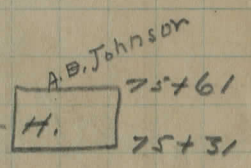 A.B. Johnson
75+61
H.
75+31